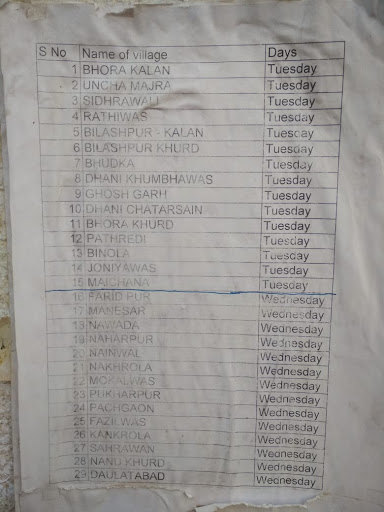 S No Name of village Days
1 BHORA KALAN Tuesday
2 UNCHA MAJRA Tuesday
3 SIDHRAWALI Tuesday
4 RATHIWAS Tuesday
5 BILASHPUR - KALAN Tuesday
6 BILASHPUR KHURD Tuesday
7 BHUDKA Tuesday
8 DHANI KHUMBHAWAS Tuesday
9 GHOSH GARH Tuesday
10 DHANI CHATARSAIN Tuesday
11 BHORA KHURD Tuesday
12 PATHREDI Tuesday
13 BINOLA Tuesday
14 JONIYAWAS Tuesday
15 MAICHANA Tuesday
16 FARID PUR Wednesday
17 MANESAR Wednesday
18 NAWADA Wednesday
19 NAHARPUR Wednesday
20 NAINWAL Wednesday
21 NAKHROLA Wednesday
22 MOKALWAS Wednesday
23 PUKHARPUR Wednesday
24 PACHGAON Wednesday
25 FAZILWAS Wednesday
26 KANKROLA Wednesday
27 SAHRAWAN Wednesday
28 NANU KHURD Wednesday
29 DAULATABAD Wednesday